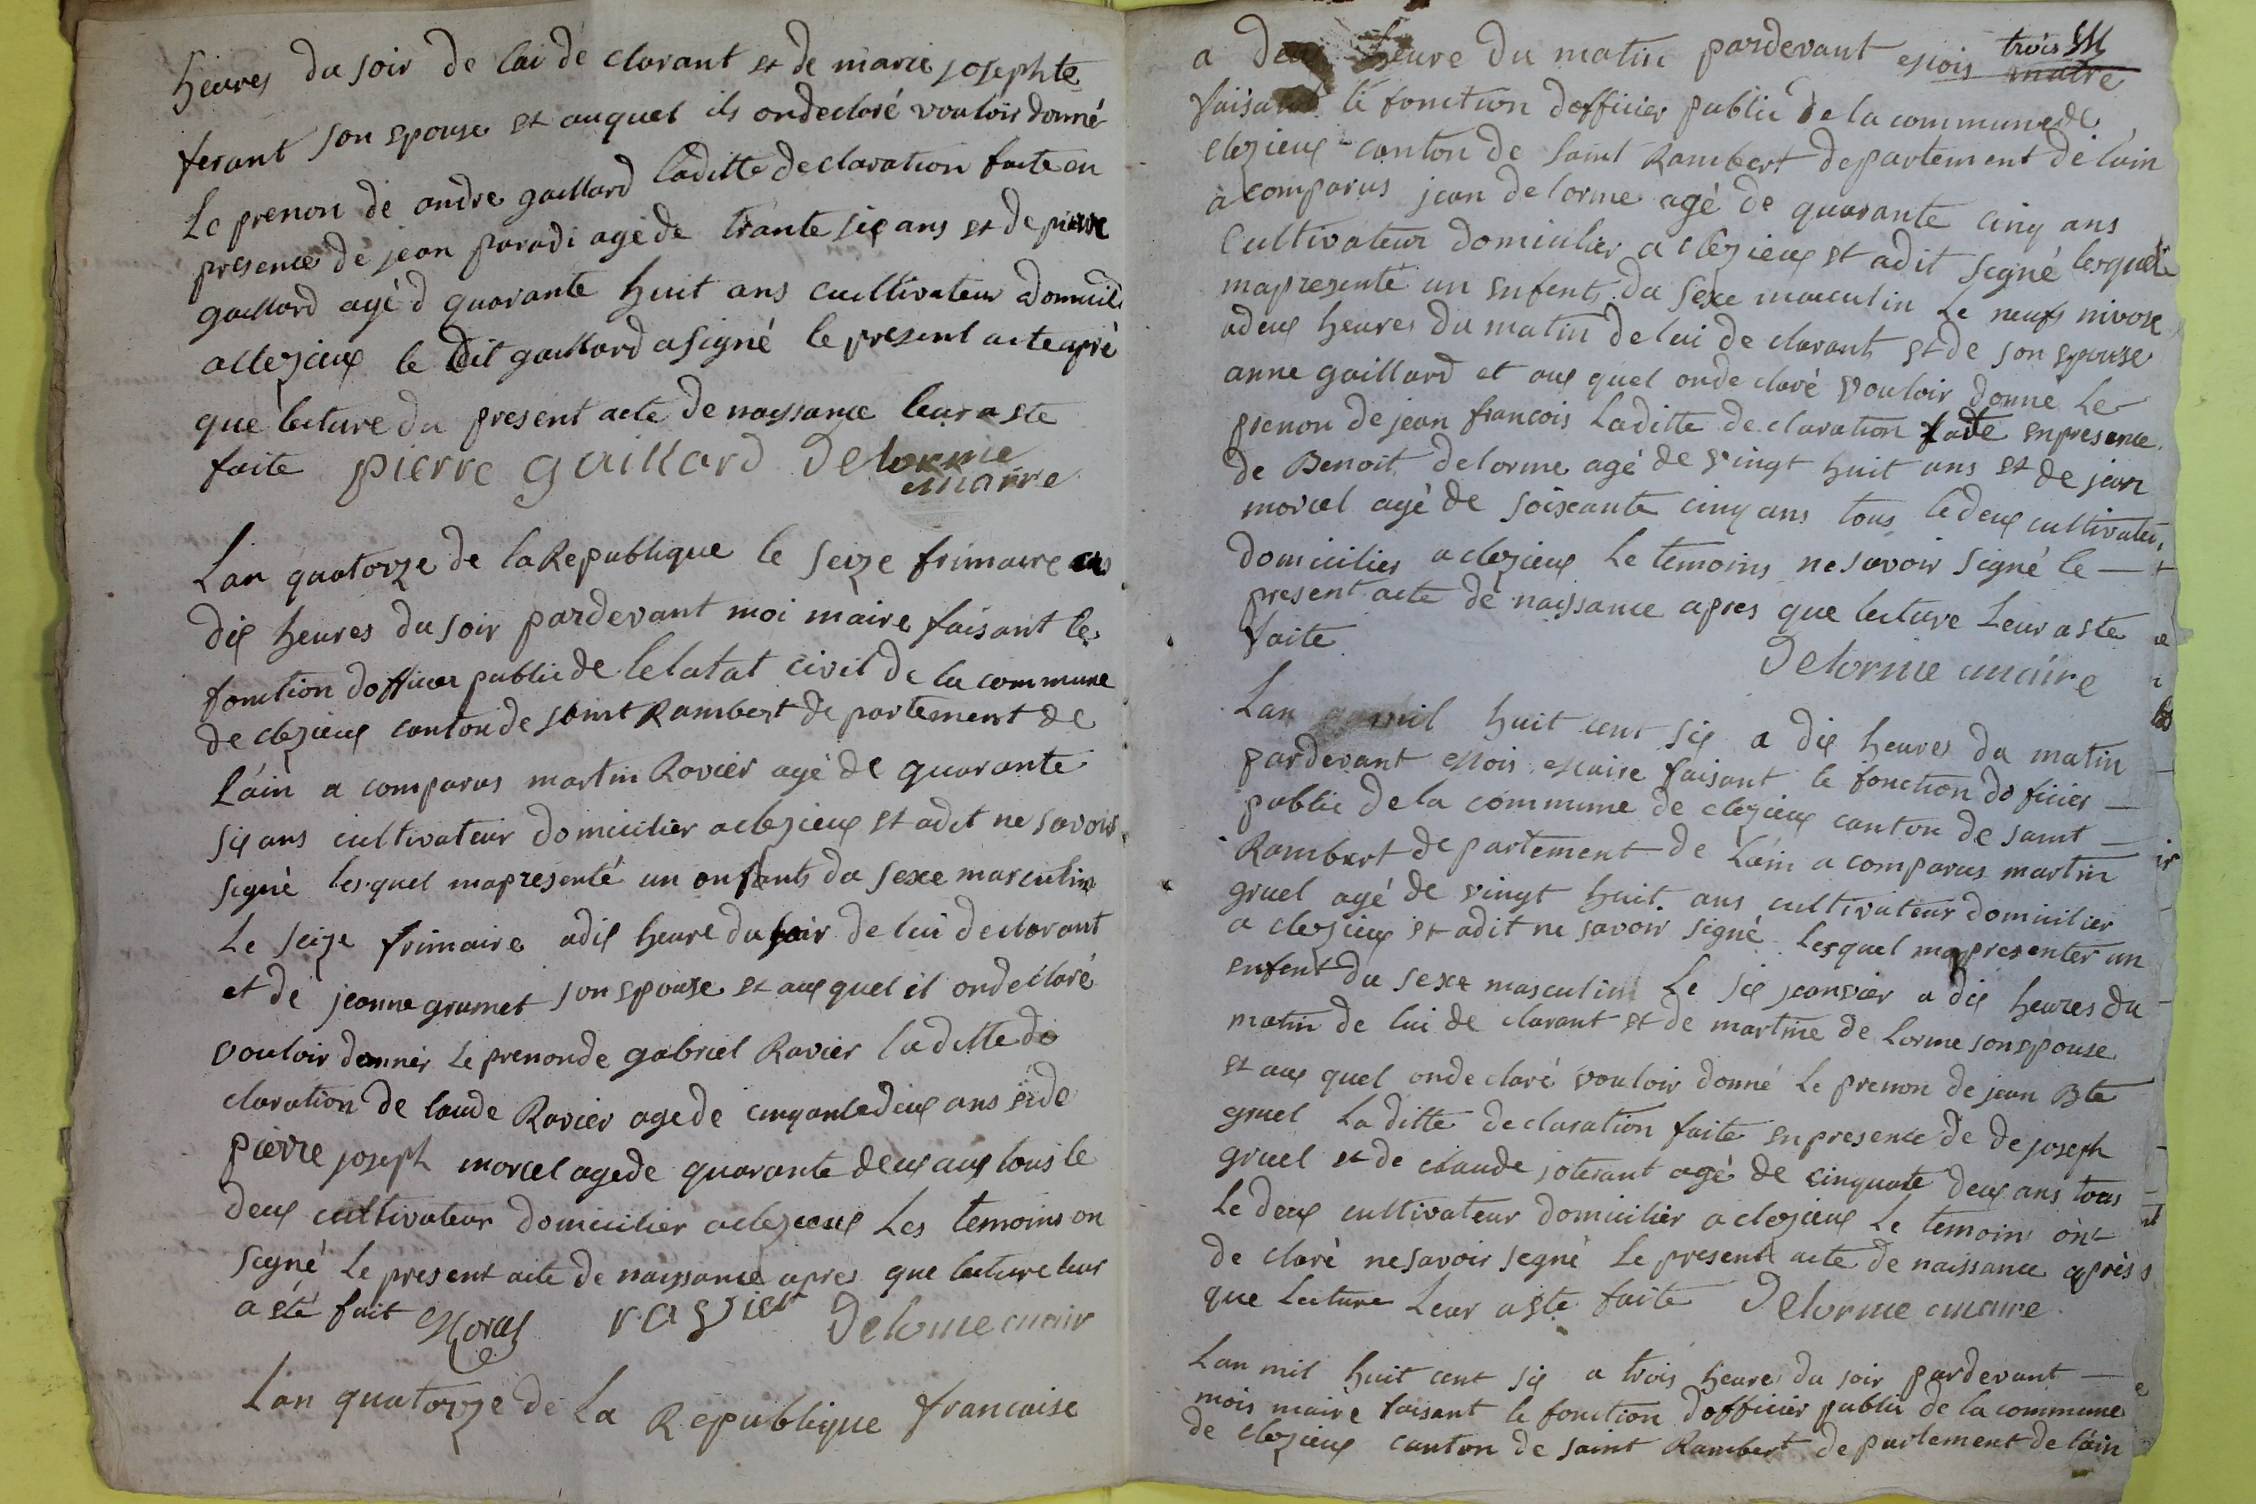 heures du soir de lui de clarant et de marie josephte
ferant son epouse et auquel ils ondeclaré vouloir donné
Le prenon de andre gaillard laditte declaration faite en
presence de jean paradi agé de trante six ans et de pierre
gaillard agé d quarante huit ans cultivateur domicil
aclezieux le dit gaillard a signé le present acte aprè
que lecture du present acte de naissance leur a ete
faite pierre gaillard Delorme
maire
Lan quatorze de la Republique le seize frimaire
dix heures du soir pardevant moi maire faisant le
fonction dofficier public de letatat civil de la commune
de clezieux canton de saint Rambert de partement de
L'ain a comparus martin Ravier agé de quarante
six ans cultivateur domicilier aclezieux et adit ne savoir
signé lesquel mapresenté un enfants du sexe masculin
Le seize frimaire adix heure du soir de lui declarant
et de jeanne grumet son epouse et aux quel il ondeclaré
vouloir donner Le prenon de gabriel Ravier laditte de
claration de laude Ravier age de cinquante deux ans et de
pierre joseph morcel age de quarante deux ans tous le
deux cultivateur domicilier aclezieux Les temoins on
signé Le present acte de naissance apres que lecture leur
a été fait Morcel ravier Delorme mair
Lan quatorze de La Republique francaise
a deux heure du matin pardevant mois trois
matre
faisant le fonction dofficier public de la commune de
clezieux canton de saint Rambert departement de lain
a comparus jean delorme agé de quarante cinq ans
Cultivateur domicilier a clezieux et adit signé lesquel
mapresenté un enfents du sexe masculin Le neuf nivose
adeux heures du matin de lui de clarant et de son epouse
anne gaillard et aux quel onde claré vouloir donné Le
prenon de jean francois Laditte declaration faite enpresence
de Benoit delorme agé de vingt huit ans et de jean
morcel agé de soixante cinq ans tous le deux cultivateur
domicilier a clezieux Le temoins ne savoir signé le —
present acte de naissance apres que lecture Leur a ete
faite
Delorme maire
Lan mil huit cent six a dix heures du matin
pardevant mois maire faisant le fonction do ficier —
public de la commune de clezieux canton de saint —
Rambert departement de L'ain a comparus martin
gruel agé de vingt huit ans cultivateur domicilier
a clezieux et adit ne savoir signé Lesquel mapresenter un
enfent du sexe masculin Le six jeanvier a dix heures du
matin de lui de clarant et de martine de Lorme son epouse
et aux quel onde claré vouloir donné Le prenon de jean Bte
gruel Laditte declaration faite enpresence de de joseph
gruel et de claude joterant agé de cinquate deux ans tous
Le deux cultivateur domicilier a clezieux Le temoin ont
de claré ne savoir segné Le present acte de naissance aprés
que Lecture Leur a ete faite Delorme maire
Lan mil huit cent six a trois heure du soir pardevant —
mois maire faisant le fonction dofficier public de la commune
de clezieux canton de saint Rambert departement de l'ain